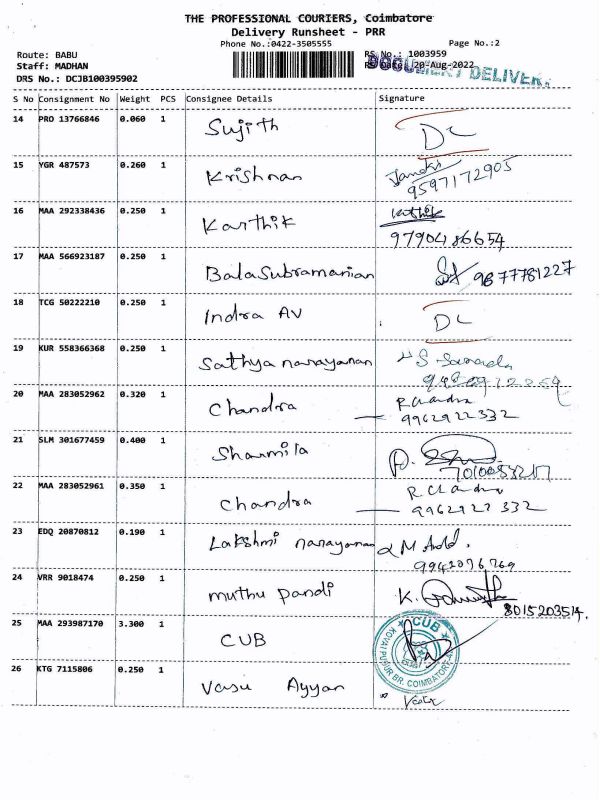 THE PROFESSIONAL COURIERS, Coimbatore
Delivery Runsheet - PRR
Phone No.:0422-3505555 Page No.:2
Route: BABU RS No.: 1003959
Staff: MADHAN RS Date: 20-Aug-2022
DOCUMENT DELIVERY
DRS No.: DCJB100395902
S No Consignment No Weight PCS Consignee Details Signature
14 PRO 13766846 0.060 1 Sujith DC
15 YGR 487573 0.260 1 Krishnan
9597172905
16 MAA 292338436 0.250 1 Karthik
9790486654
17 MAA 566923187 0.250 1 Balasubramanian 9877781227
18 TCG 50222210 0.250 1 Indra AV DC
19 KUR 558366368 0.250 1 Sathya narayanan
20 MAA 283052962 0.320 1 Chandra R Chandra
9962922332
21 SLM 301677459 0.400 1 Sharmila
22 MAA 283052961 0.350 1 Chandra R Chandra
9962922332
23 EDQ 20870812 0.190 1 Lakshmi narayanan
24 VRR 9018474 0.250 1 muthu pandi K.
8015203514
25 MAA 293987170 3.300 1 CUB
CUB
KOVAIPUDUR BR. COIMBATORE
26 KTG 7115806 0.250 1 Vasu Ayyan